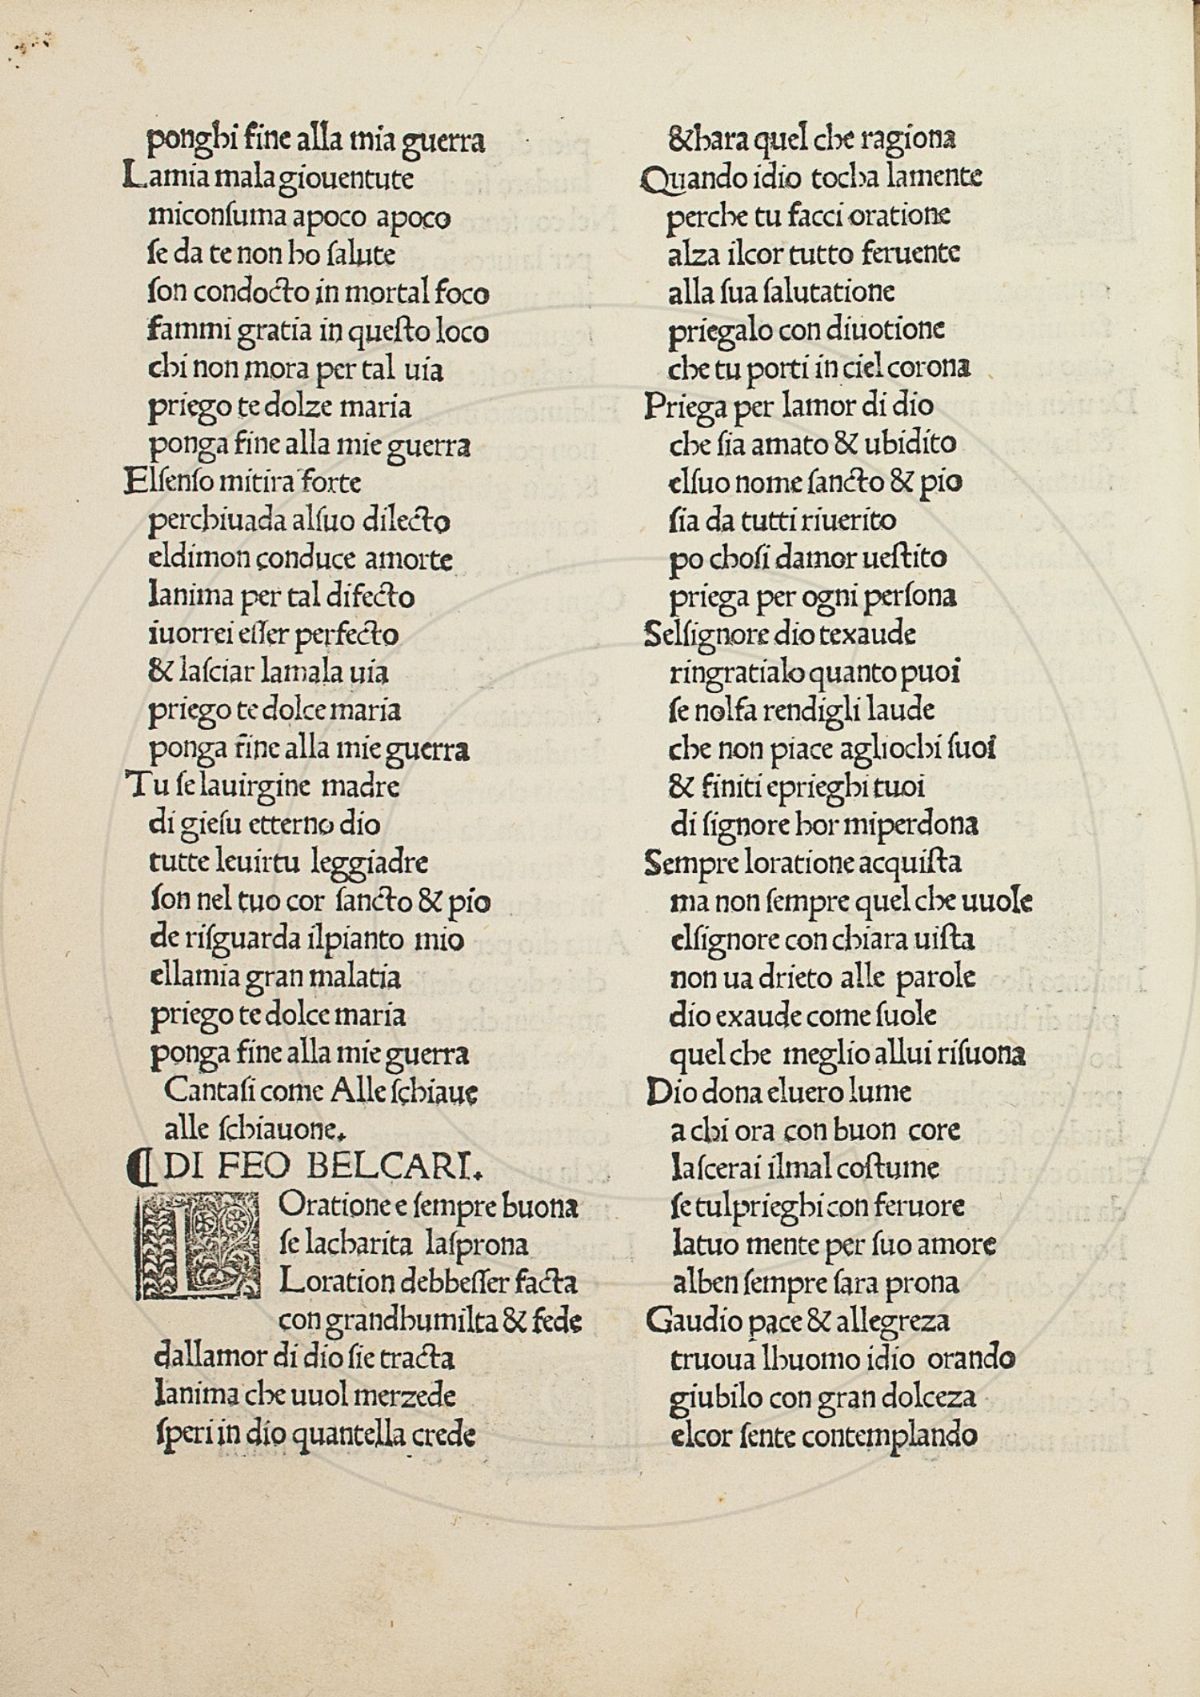 ponghi fine alla mia guerra
Lamia mala giouentute
miconſuma apoco apoco
ſe da te non ho ſalute
ſon condocto in mortal foco
fammi gratia in queſto loco
chi non mora per tal uia
priego te dolze maria
ponga fine alla mie guerra
Elſenſo mitira forte
perchiuada alſuo dilecto
eldimon conduce amorte
lanima per tal difecto
iuorrei eſſer perfecto
& laſciar lamala uia
priego te dolce maria
ponga fine alla mie guerra
Tu ſe lauirgine madre
di gieſu etterno dio
tutte leuirtu leggiadre
ſon nel tuo cor ſancto & pio
de riſguarda ilpianto mio
ellamia gran malatia
priego te dolce maria
ponga fine alla mie guerra
Cantaſi come Alle ſchiaue
alle ſchiauone.
¶ DI FEO BELCARI.
L Oratione e ſempre buona
ſe lacharita laſprona
Loration debbeſſer facta
con grandhumilta & fede
dallamor di dio ſie tracta
lanima che uuol merzede
ſperi in dio quantella crede
&hara quel che ragiona
Quando idio tocha lamente
perche tu facci oratione
alza ilcor tutto feruente
alla ſua ſalutatione
priegalo con diuotione
che tu porti in ciel corona
Priega per lamor di dio
che ſia amato & ubidito
elſuo nome ſancto & pio
ſia da tutti riuerito
po choſi damor ueſtito
priega per ogni perſona
Selſignore dio texaude
ringratialo quanto puoi
ſe nolfa rendigli laude
che non piace agliochi ſuoi
& finiti eprieghi tuoi
di ſignore hor miperdona
Sempre loratione acquiſta
ma non ſempre quel che uuole
elſignore con chiara uiſta
non ua drieto alle parole
dio exaude come ſuole
quel che meglio allui riſuona
Dio dona eluero lume
a chi ora con buon core
laſcerai ilmal coſtume
ſe tulprieghi con feruore
latuo mente per ſuo amore
alben ſempre ſara prona
Gaudio pace & allegreza
truoua lhuomo idio orando
giubilo con gran dolceza
elcor ſente contemplando